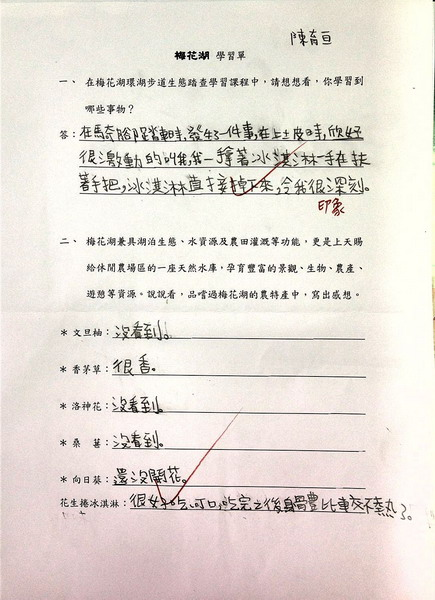 陳育亘
梅花湖 學習單
一、 在梅花湖環湖步道生態踏查學習課程中，請想想看，你學習到
哪些事物？
答：在馬奇腳踏車時，發生了一件事，在上土皮時，欣妤
很激動的叫我，我一拿著冰淇淋一手在扶
著手把，冰淇淋直接掉下來，令我很深刻。
印象
二、 梅花湖兼具湖泊生態、水資源及農田灌溉等功能，更是上天賜
給休閒農場區的一座天然水庫，孕育豐富的景觀、生物、農產、
遊憩等資源。說說看，品嚐過梅花湖的農特產中，寫出感想。
* 文旦柚：沒看到。
* 香茅草：很香。
* 洛神花：沒看到。
* 桑 葚：沒看到。
* 向日葵：還沒開花。
花生捲冰淇淋：很好吃，可口，吃完之後身體比較不熱了。